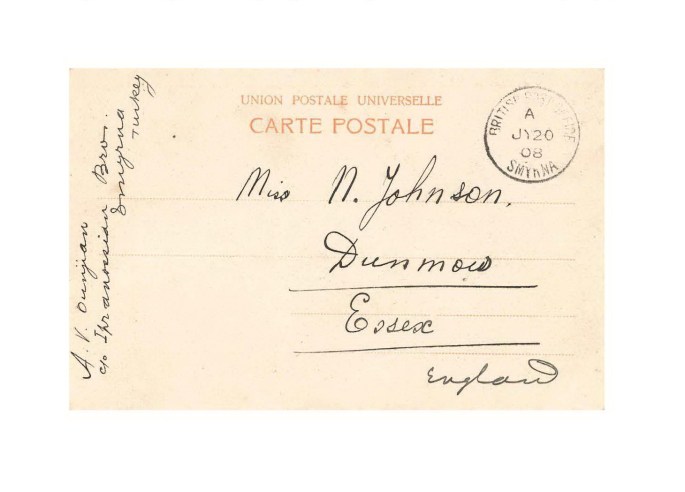 UNION POSTALE UNIVERSELLE
CARTE POSTALE
BRITISH POST OFFICE
A
JY 20
08
SMYRNA
Miss N. Johnson.
Dunmow
Essex
England
A. V. Ounjian
c/o Ipranossian Bros.
Smyrna
Turkey